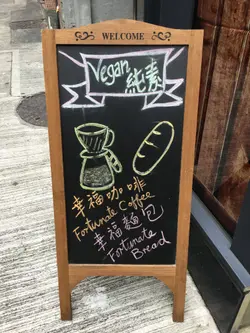 WELCOME
Vegan
純素
幸福咖啡
Fortunate Coffee
幸福麵包
Fortunate
Bread